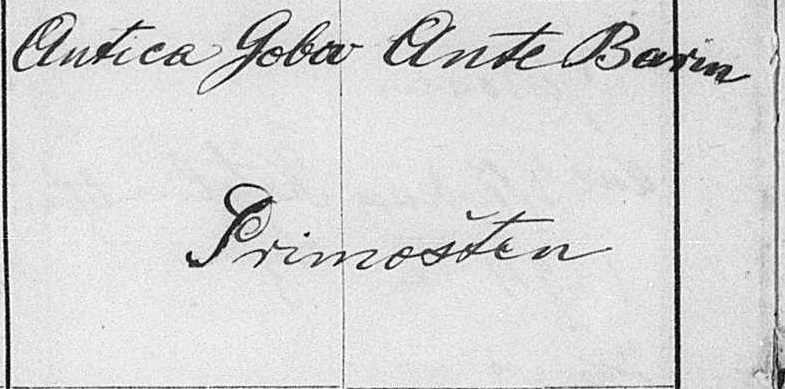 Antica Gobov Ante Barin
Primošten